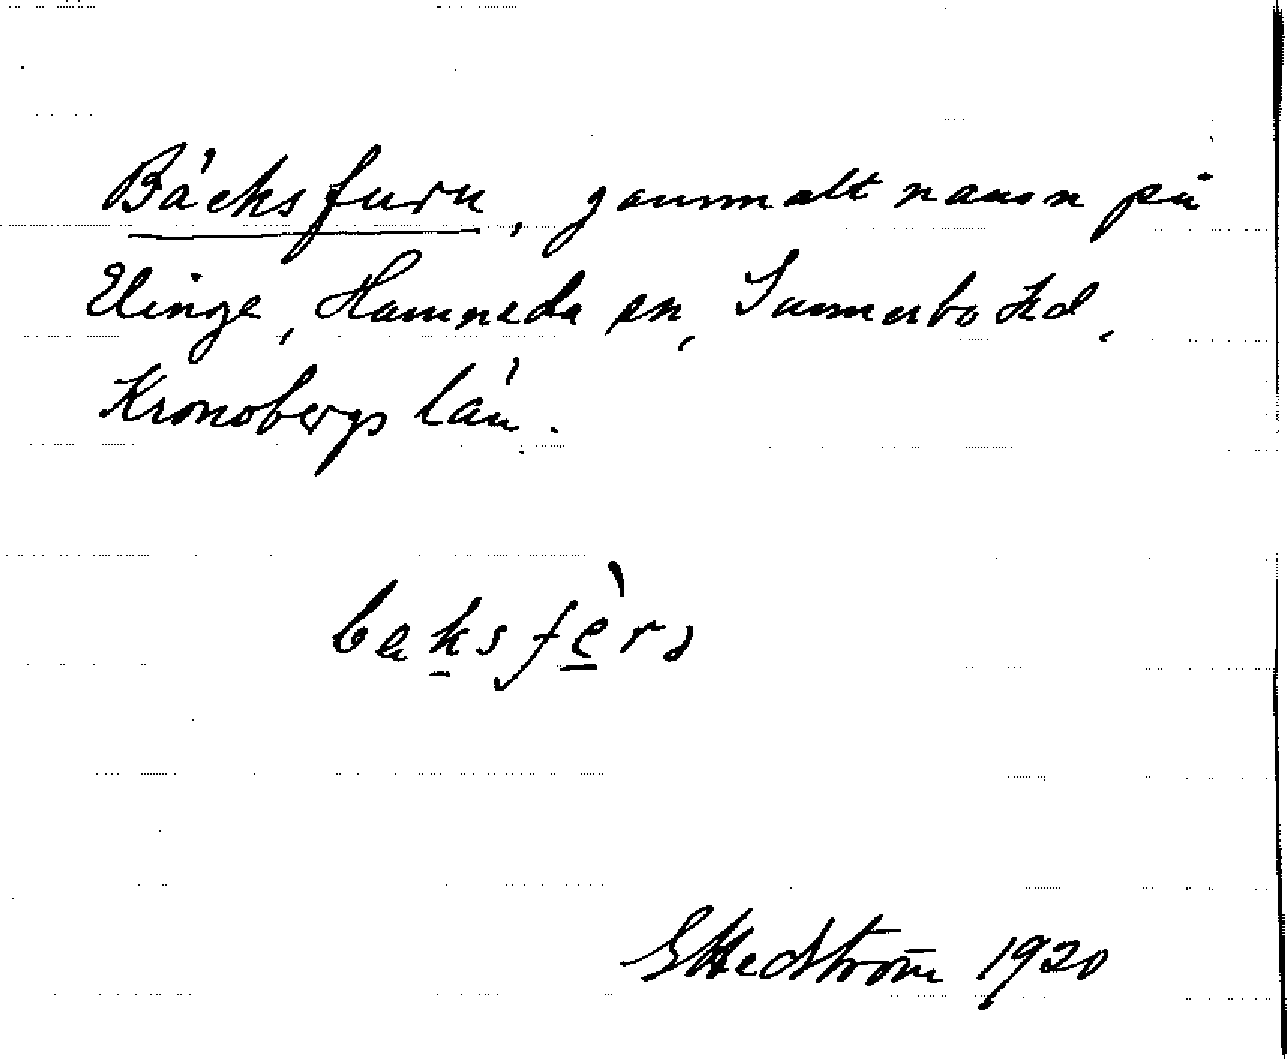 Bäcksfuru, gammalt namn på
Elinge, Hamneda sn, Sunnerbo hd,
Kronobergs län.
GHedström 1920